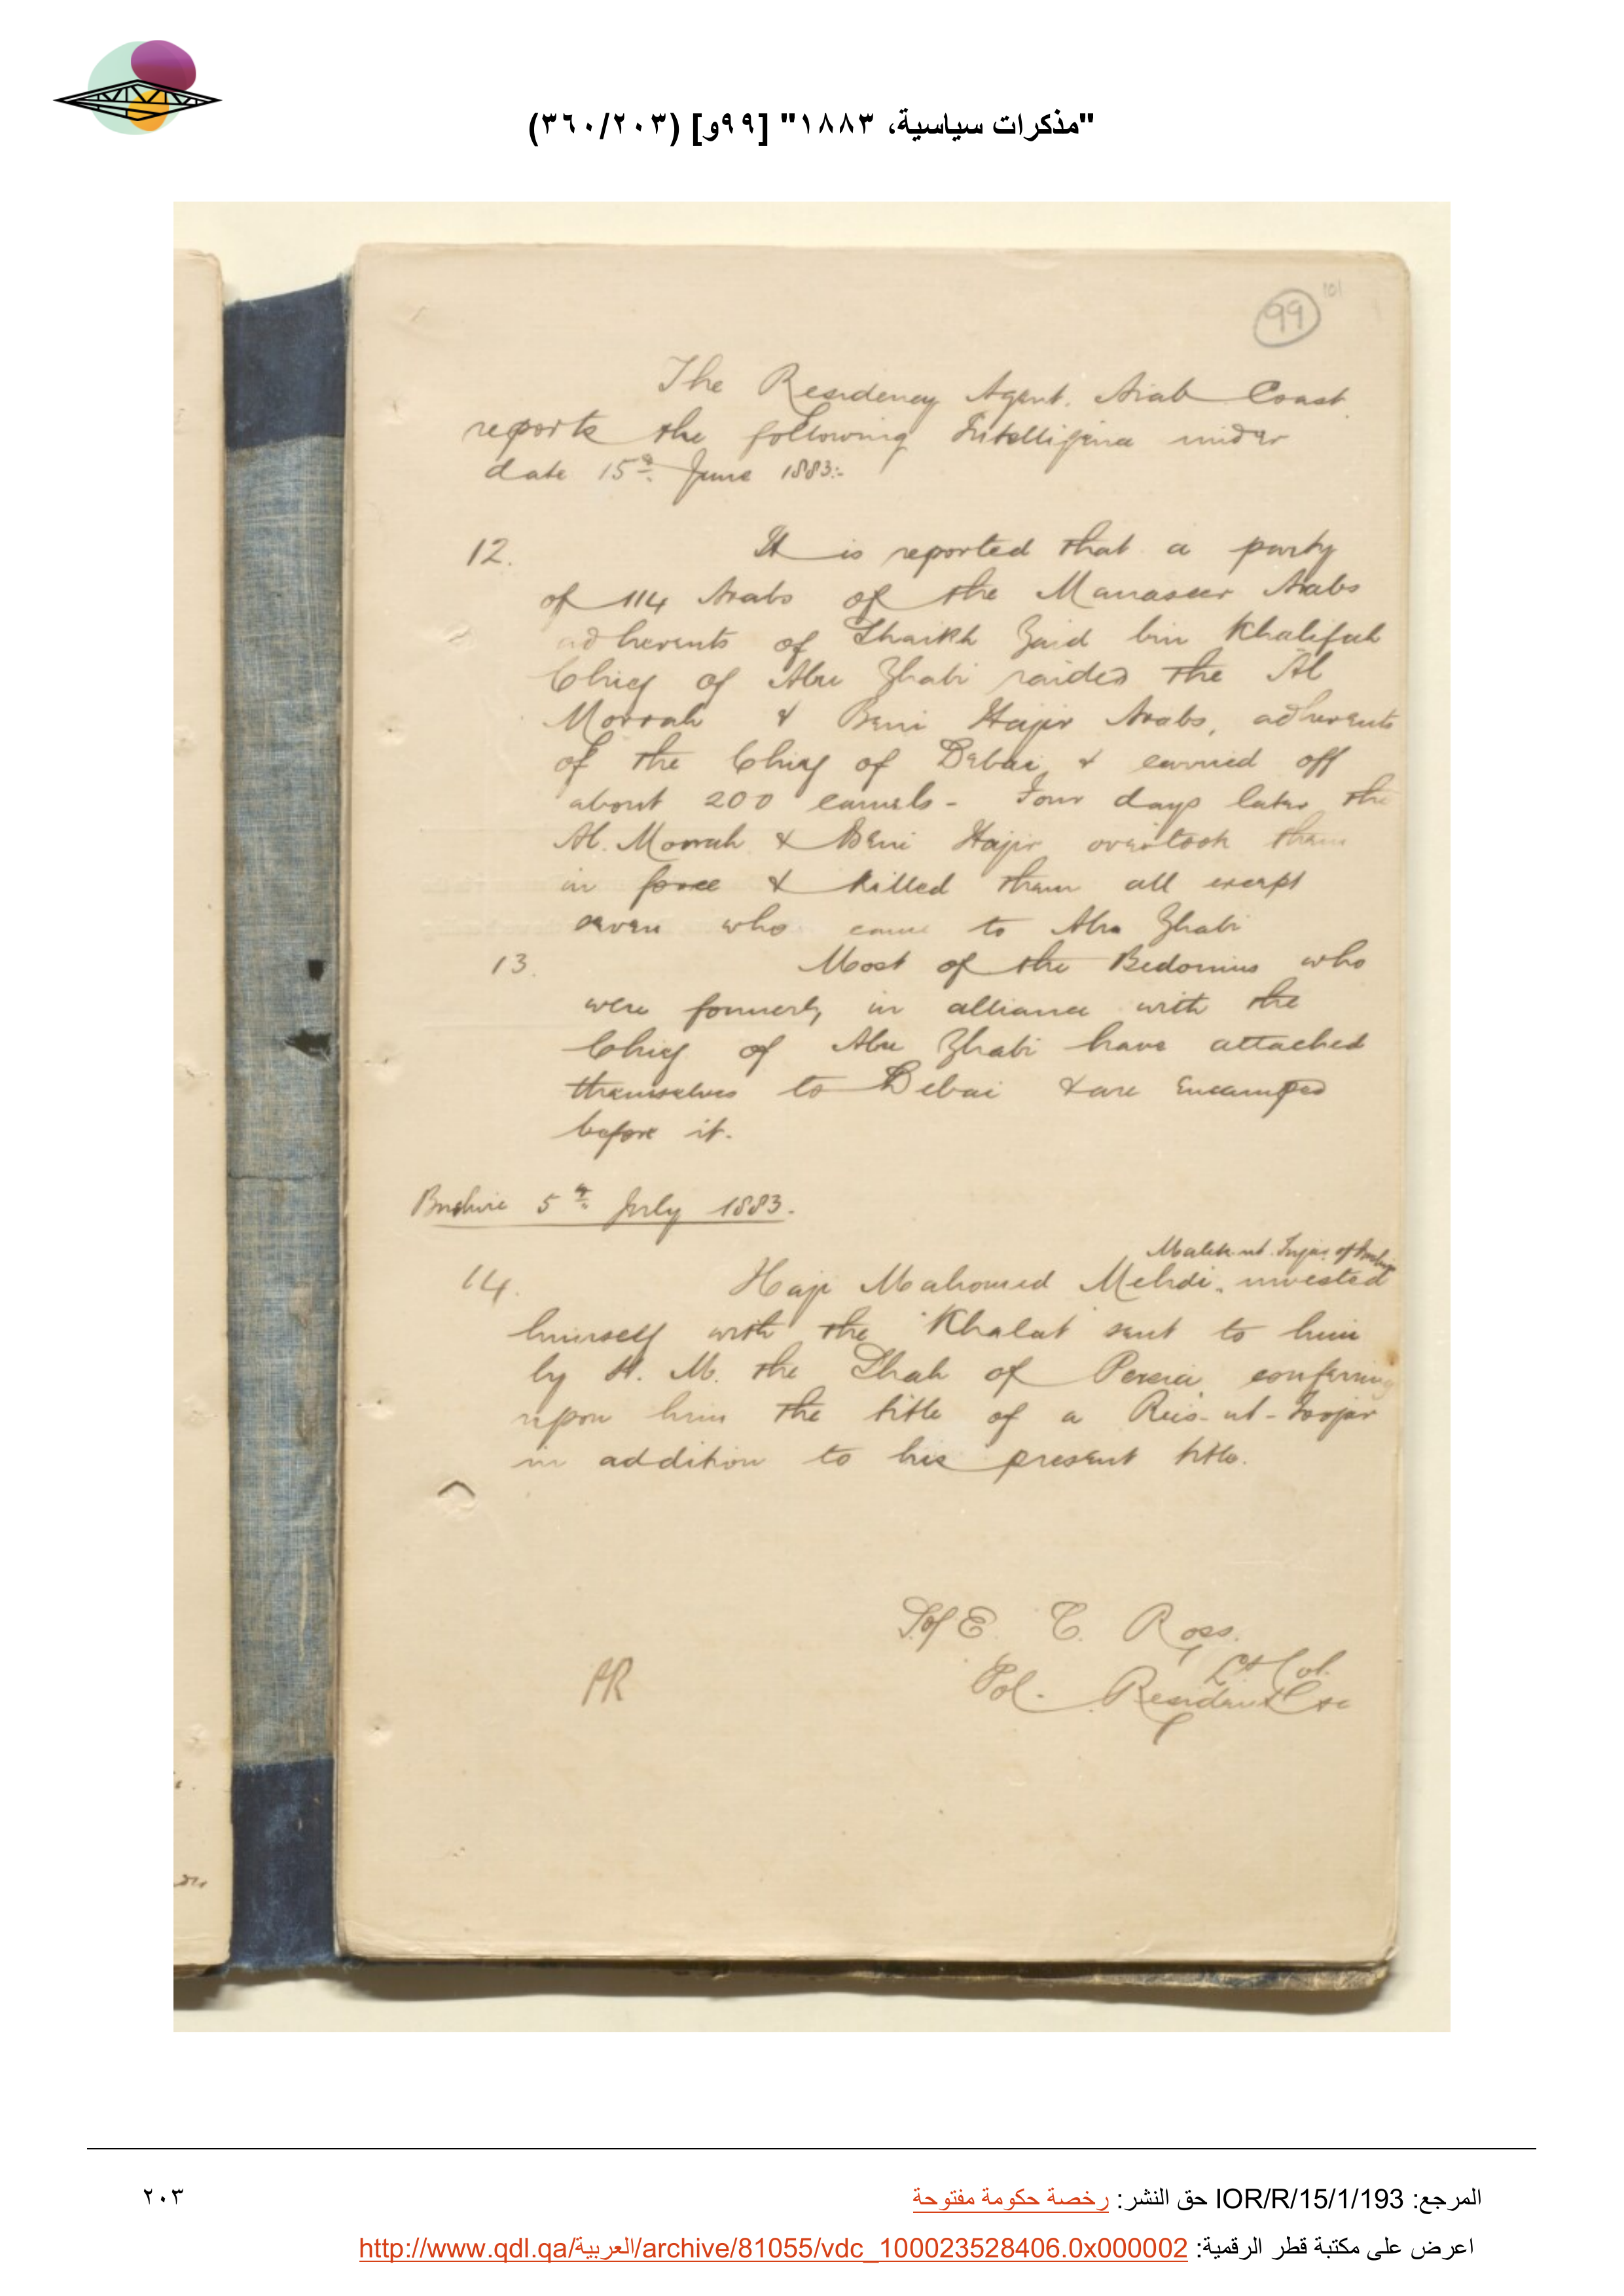 "مذكرات سياسية، ١٨٨٣" [٩٩و] (٣٦٠/٢٠٣)
101
99
The Residency Agent. Arab Coast
reports the following Intelligence under
date 15th June 1883:-
12. It is reported that a party
of 114 Arabs of the Manaseer Arabs
adherents of Shaikh Zaid bin Khalifah
Chief of Abu Zhabi raided the Al
Morrah & Beni Hajir Arabs, adherents
of the Chief of Debai, & carried off
about 200 camels - Four days later the
Al. Morrah & Beni Hajir overtook them
in force & killed them all except
seven who came to Abu Zhabi
13. Most of the Bedouins who
were formerly in alliance with the
Chief of Abu Zhabi have attached
themselves to Debai & are encamped
before it.
Bushire 5th July 1883.
Malik-ut-Tujar of Bushire
14. Haji Mahomed Mehdi, invested
himself with the Khalat sent to him
by H. M. the Shah of Persia conferring
upon him the title of a Reis-ut-Toojar
in addition to his present title.
E. C. Ross.
Lt Col.
Pol. Resident &c
AR
المرجع: IOR/R/15/1/193 حق النشر: رخصة حكومة مفتوحة
٢٠٣
اعرض على مكتبة قطر الرقمية: http://www.qdl.qa/العربية/archive/81055/vdc_100023528406.0x000002